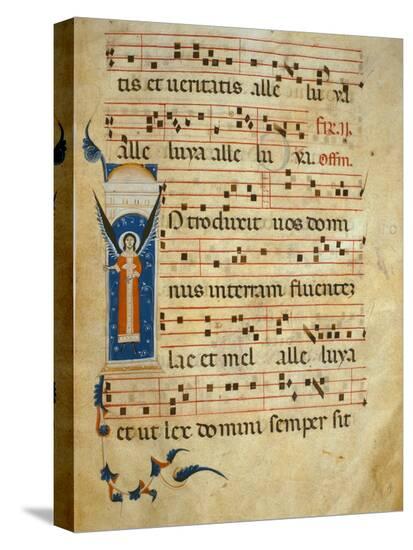 tis et ueritatis alle lu ya
alle luya alle lu ya. Offm.
Ntroduxit uos domi
nus interram fluentez
lac et mel alle luya
et ut lex domini semper sit